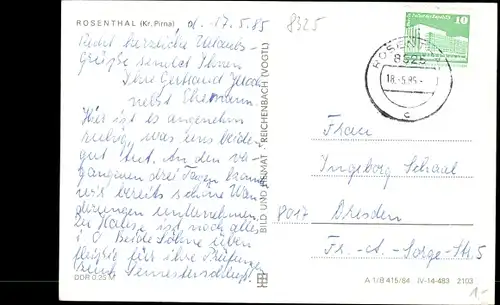 ROSENTHAL (Kr. Pirna)
d. 17.5.85
8325
Recht herzliche Urlaubs-
grüße sendet Ihnen
Ihre Gerhard
nebst Ehemann
Hier ist es angenehm
ruhig, was uns beiden
gut tut. An den ver-
gangenen drei Tagen konnten
wir bereits schöne Wan-
derungen unternehmen.
Zu Hause ist noch alles
i. O. Beide Söhne üben
fleißig für ihre Prüfung
bzw. Semesterschluß.
DDR 0,25 M
BILD UND HEIMAT REICHENBACH (VOGTL)
10
ROSENTHAL
8325
18.-5.85-
c
Frau
Ingeborg Schaal
8017 Dresden
Fr.-A.-Sorge-Str. 5
A 1/B 415/84 IV-14-483 2103
1,-